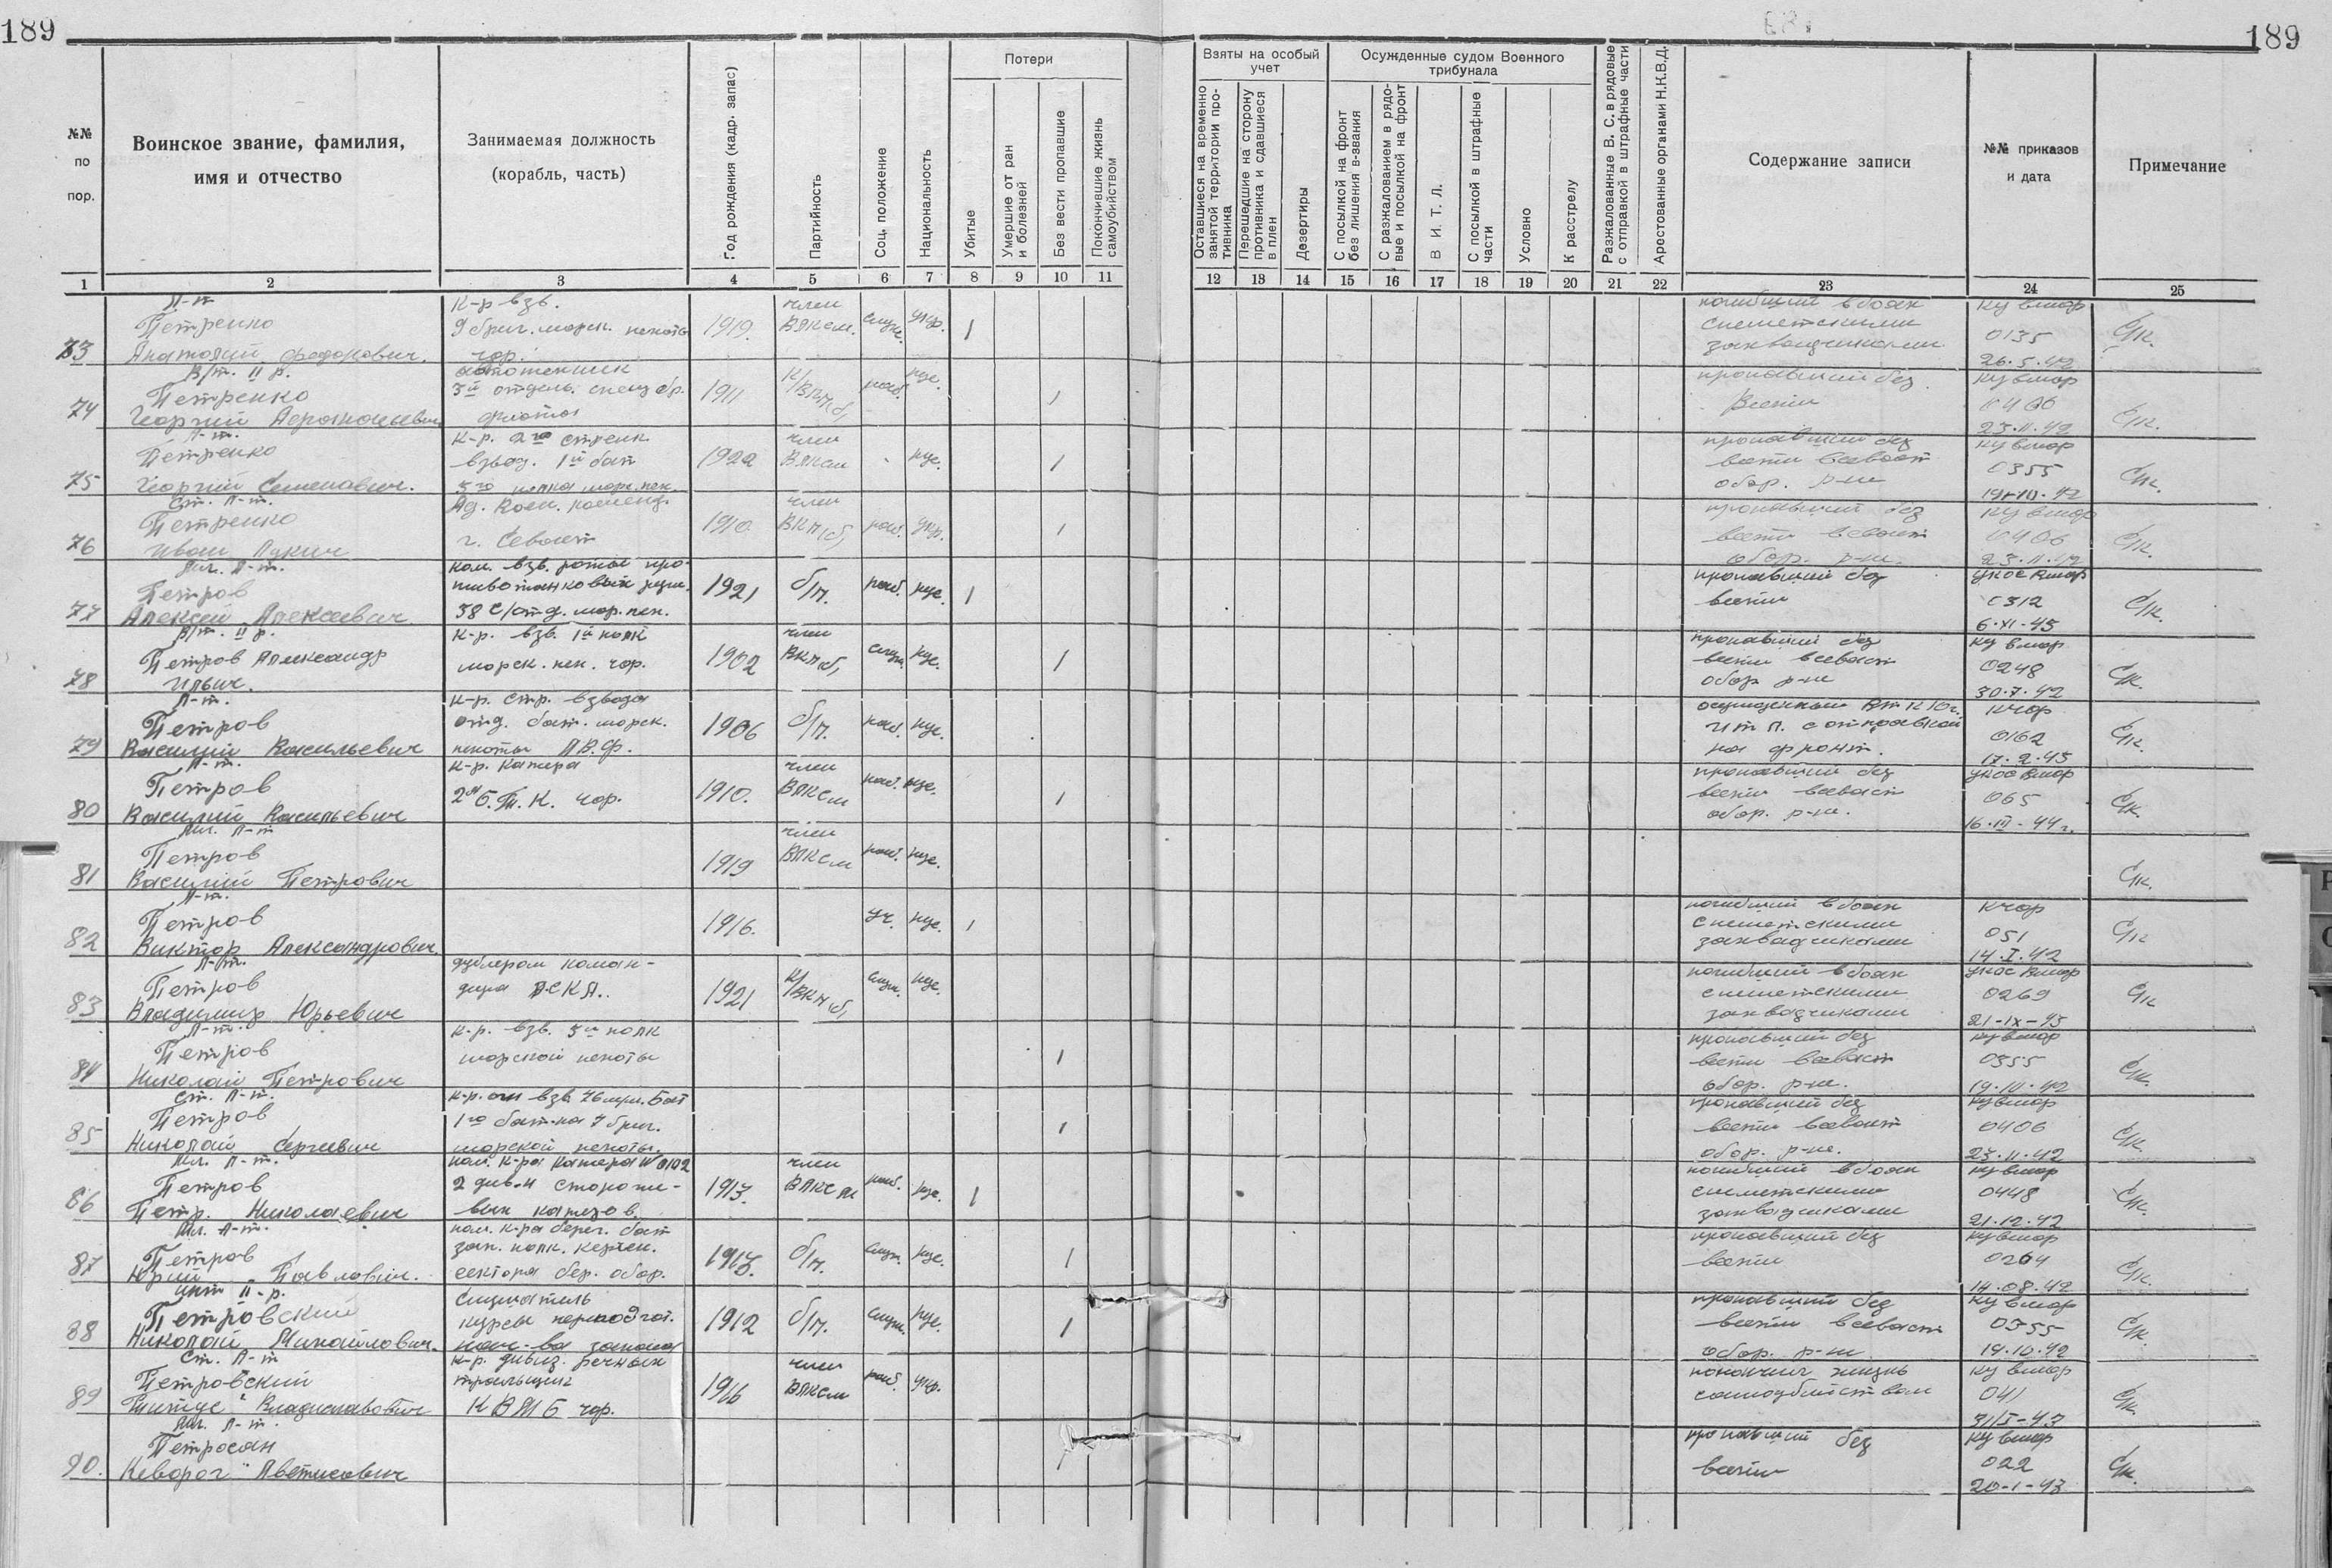 189
189
№№ по пор.
Воинское звание, фамилия, имя и отчество
Занимаемая должность (корабль, часть)
Год рождения (кадр. запас)
Партийность
Соц. положение
Национальность
Потери
Убитые
Умершие от ран и болезней
Без вести пропавшие
Покончившие жизнь самоубийством
Взяты на особый учет
Оставшиеся на временно занятой территории противника
Перешедшие на сторону противника и сдавшиеся в плен
Дезертиры
Осужденные судом Военного трибунала
С посылкой на фронт без лишения в-звания
С разжалованием в рядовые и посылкой на фронт
В И. Т. Л.
С посылкой в штрафные части
Условно
К расстрелу
Разжалованные В. С. в рядовые с отправкой в штрафные части
Арестованные органами Н.К.В.Д.
Содержание записи
№№ приказов и дата
Примечание
1 2 3 4 5 6 7 8 9 10 11 12 13 14 15 16 17 18 19 20 21 22 23 24 25
Л-т к-р взв. член погибший в боях кувмор
Петренко 9 бриг. морск. пехоты 1919. ВЛКСМ. служ. укр. 1 с немецкими 0135 С/к.
73 Анатолий чор. захватчиками 26.5.42
В/т. II р. к/ пропавший без кувмор
Петренко 3й отдель. 1911 ВКП(б) раб. рус. 1 вести 0406 С/к.
74 Георгий флота 23.11.42
Л-т. к-р. 2го стрелк. член пропавший без кувмор
Петренко взвод. 1й бат 1922 ВЛКСМ - рус. 1 вести в Севаст 0355 С/к.
75 Георгий Семенович. 3го полка морск. пех. обор. р-не 42
Ст. Л-т. Ад. Воен. коменд. член пропавший без кувмор
Петренко 1910. ВКП(б) раб. укр. 1 вести в Севаст 0406 С/к.
76 Иван Лукич г. Севаст обор. р-не. 23.11.42
Мл. Л-т. ком. взв. роты про- пропавший без
Петров тивотанковых руж. 1921 б/п. раб. рус. 1 вести 0312 С/к.
77 Алексей Алексеевич 38 мор. пех. 6-XI-43
В/т. II р. к-р. взв. 1й полк член пропавший без кувмор
Петров Александр морск. пех. чор. 1902 ВКП(б) служ. рус. 1 вести в Севаст 0248 С/к.
78 Ильич. обор р-не 30.7.42
Л-т. к-р. стр. взвода осужденный кчор
Петров отд. бат. морск. 1906 б/п. раб. рус. с отправкой 0162 С/к.
79 Василий Васильевич пехоты на фронт. 17.2.43
Л-т. к-р. катера член пропавший без
Петров 2й Б.Т.К. чор. 1910. ВЛКСМ раб. рус. 1 вести в Севаст 065 С/к.
80 Василий Васильевич обор. р-не. 16-III-44г.
Мл. Л-т член
Петров 1919 ВЛКСМ раб. рус. С/к.
81 Василий Петрович
Л-т. погибший в боях кчор
Петров 1916. уч. рус. 1 с немецкими 051 С/к
82 Виктор Александрович захватчиками 14.I.42
Л-т. дублером коман- к/ погибший в боях
Петров дира 1921 ВКП(б) служ. рус. с немецкими 0269 С/к
83 Владимир Юрьевич захватчиками 21-IX-43
Л-т. к-р. взв. полк пропавший без кувмор
Петров морской пехоты 1 вести в Севаст 0355 С/к.
84 Николай Петрович обор. р-не. 19.10.42
Ст. Л-т. к-р. взв. пропавший без кувмор
Петров 1го бат-на 7 бриг. 1 вести в Севаст 0406 С/к.
85 Николай Сергеевич морской пехоты. обор. р-не. 23.11.42
Мл. Л-т. пом. к-ра катера № 0102 член погибший в боях кувмор
Петров 2 див-н стороже- 1917. ВЛКСМ раб. рус. 1 с немецкими 0448 С/к.
86 Петр. Николаевич вых катеров. захватчиками 21.12.42
Мл. Л-т. пом. к-ра берег. бат пропавший без кувмор
Петров зап. полк. керчен. б/п. служ. рус. 1 вести 0264 С/к.
87 Юрий Павлович. сектора бер. обор. 14.08.42
инт II-р. слушатель пропавший без кувмор
Петровский курсы 1912 б/п. служ. рус. 1 вести в Севаст 0355 С/к
88 Николай Михайлович. нач-ва запаса обор. р-не 19.10.42
Ст. Л-т к-р. дивиз. речных член покончил жизнь кувмор
Петровский тральщик 1916 ВЛКСМ раб. укр. самоубийством 041 С/к.
89 Владиславович КВМБ чор. 31/I-43
Мл. Л-т. пропавший без кувмор
Петросян вести 022 С/к.
90. Кеворг Аветисович 20-1-43